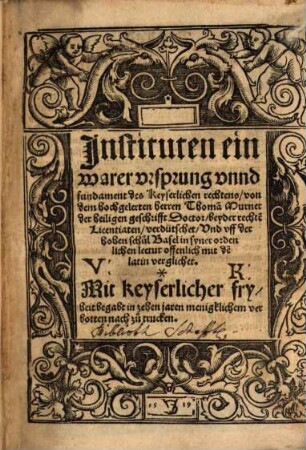 Instituten ein
warer vrsprung vnnd
fundament des Keyserlichen rechtens/von
dem hochgelerten herren Thomā Murner
der heiligen geschrifft Doctor/beyder rechtē
Licentiaten/verdütschet/Vnd vff der
hohen schůl Basel in syner orden
lichen lectur offenlich mit dē
latin verglichet.
V. R.
Mit keyserlicher fry
heit begabt in zehen jaren menigklichem ver
botten nach zů trucken.
15 19